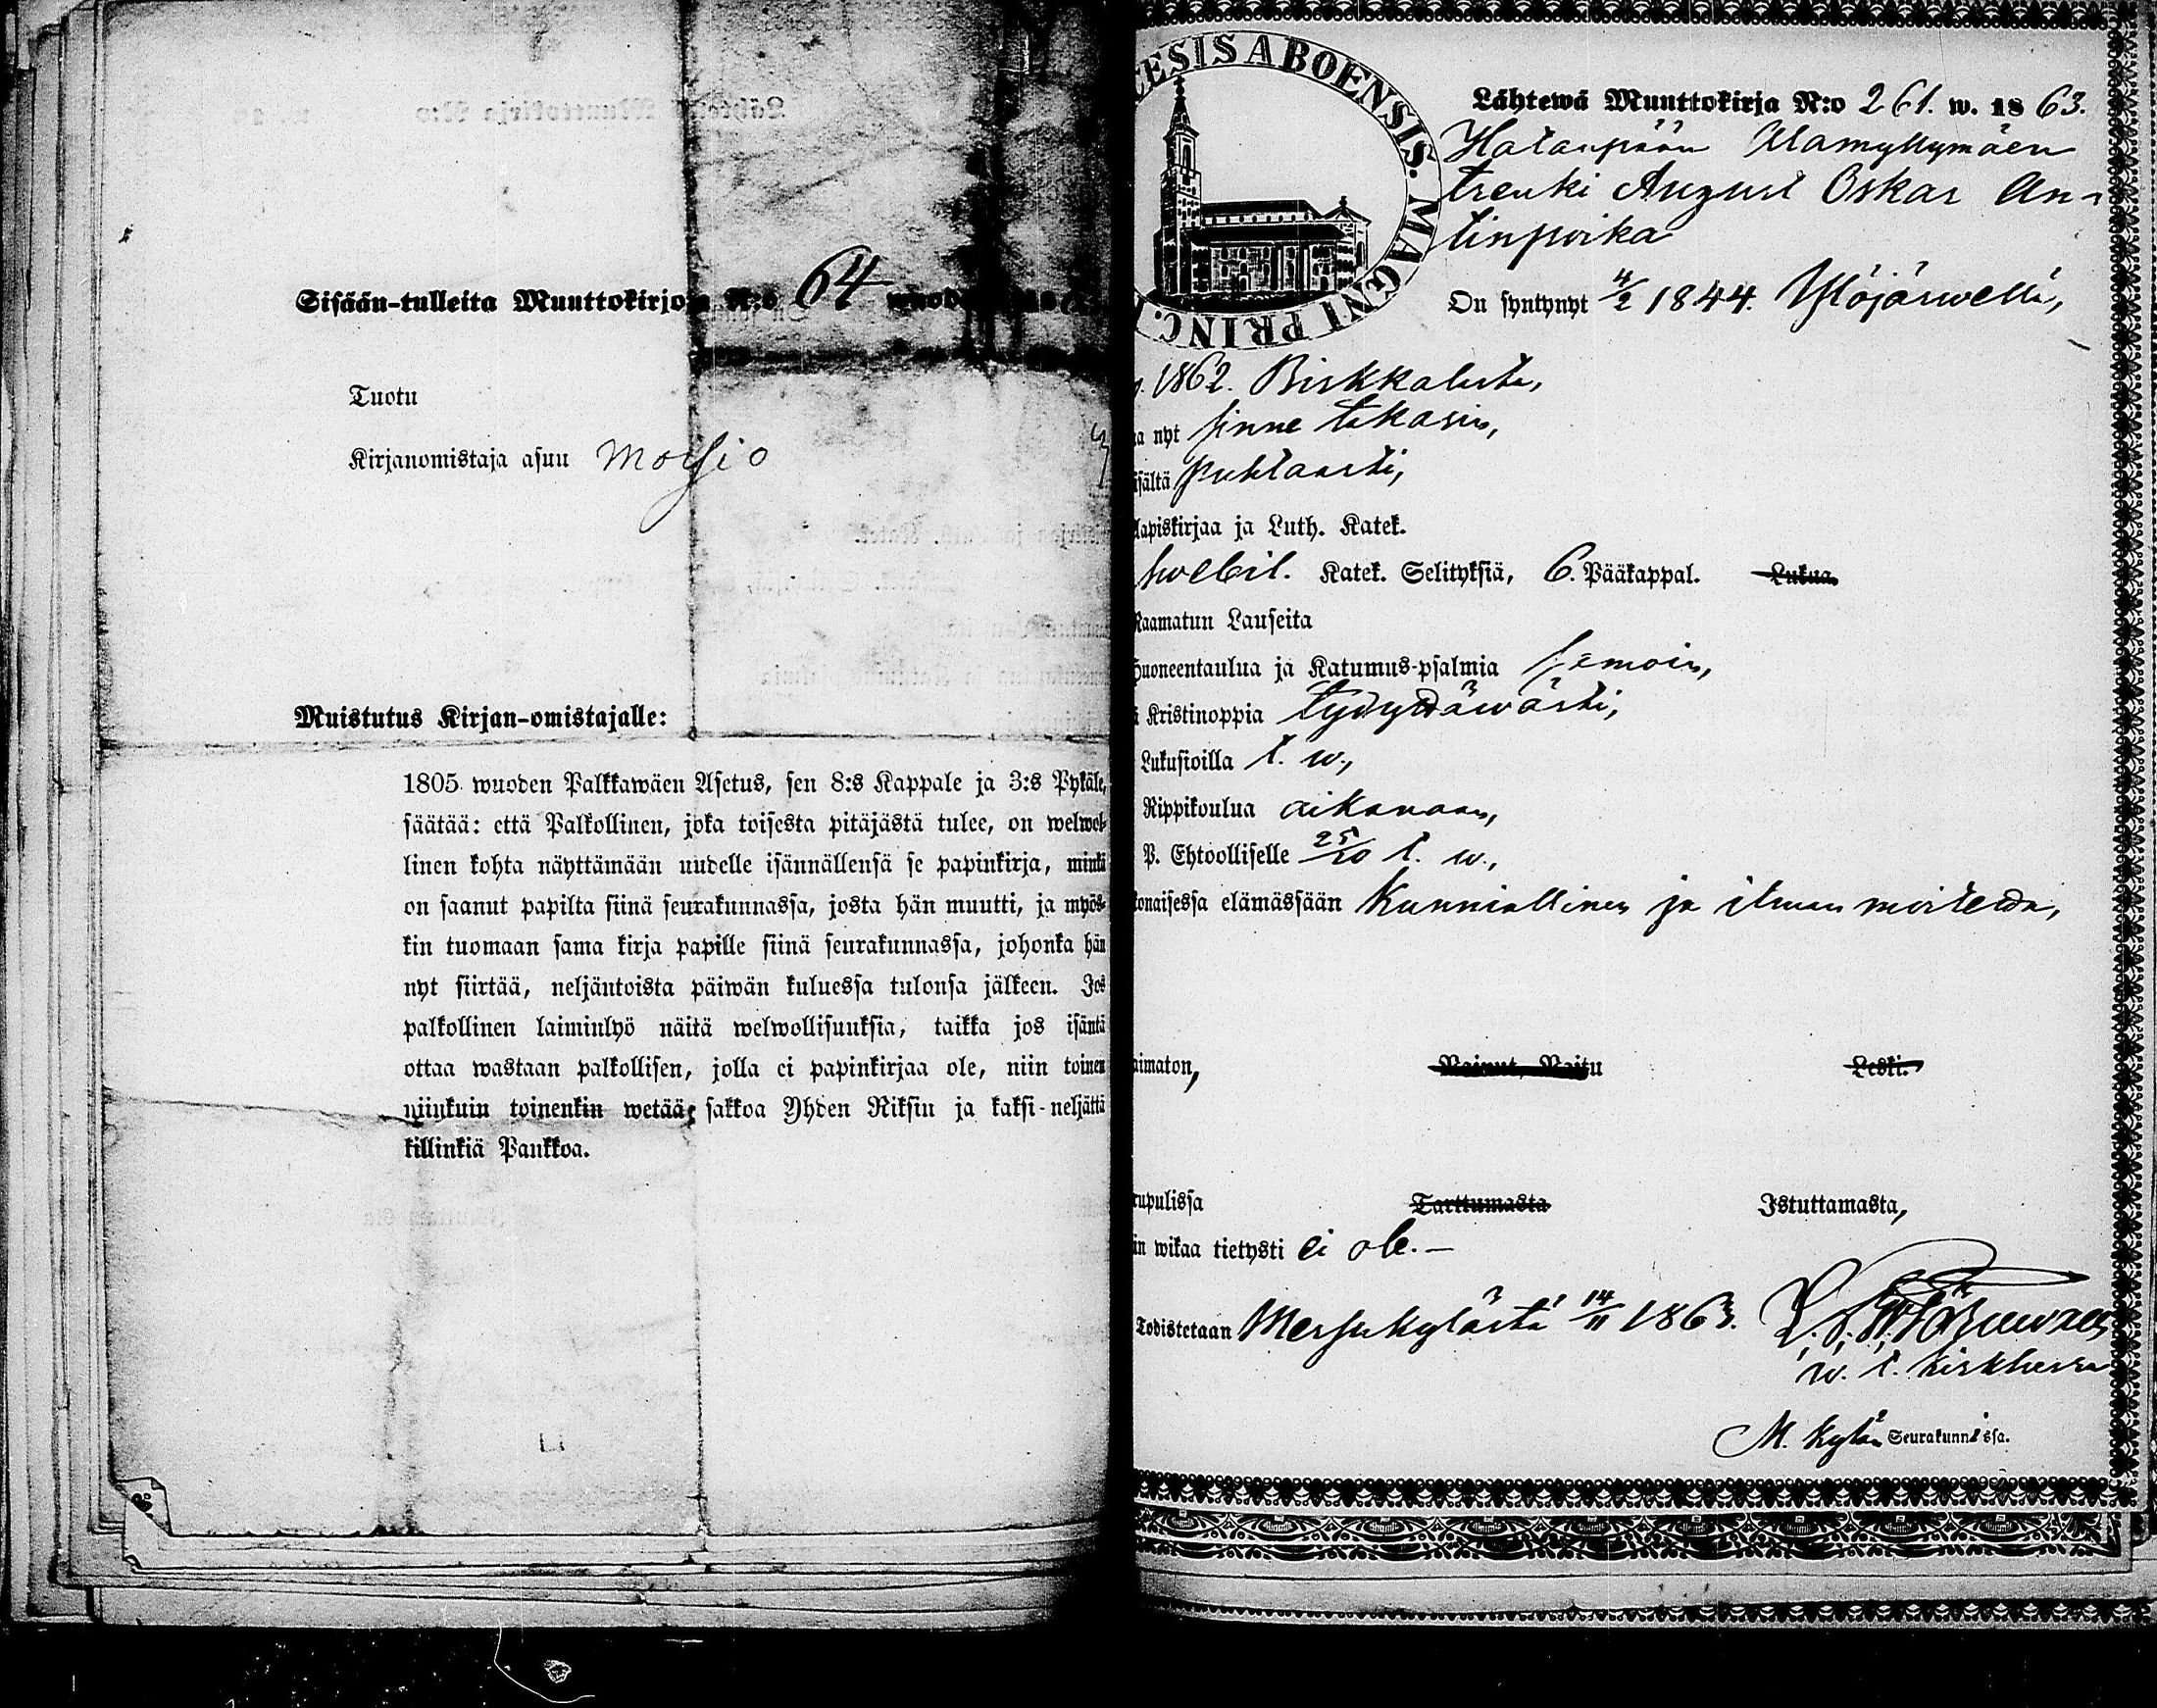 Sisään-tulleita Muuttokirjoja N:o 64
Tuotu
Kirjanomistaja asuu Moisio
Muistutus Kirjan-omistajalle:
1805 wuoden Palkkawäen Asetus, sen 8:s Kappale ja 3:s Pykäle,
säätää: että Palkollinen, joka toisesta pitäjästä tulee, on welwol-
linen kohta näyttämään uudelle isännällensä se papinkirja, minkä
on saanut papilta siinä seurakunnassa, josta hän muutti, ja myös-
kin tuomaan sama kirja papille siinä seurakunnassa, johonka hän
nyt siirtää, neljäntoista päiwän kuluessa tulonsa jälkeen. Jos
palkollinen laiminlyö näitä welwollisuuksia, taikka jos isäntä
ottaa wastaan palkollisen, jolla ei papinkirjaa ole, niin toinen
niinkuin toinenkin wetää sakkoa Yhden Riksin ja kaksi-neljättä
killinkiä Pankkoa.
EESIS ABOENSIS. MAGNI PRINC.
Lähtewä Muuttokirja N:o 261. w. 1863.
Hatanpään Alamyllymäen
trenki August Oskar An-
tinpoika
On syntynyt 4/2 1844. Ylöjärwellä,
1862. Birkkalasta,
a nyt sinne takasin,
isältä puhtaasti,
apiskirjaa ja Luth. Katek.
Swebil. Katek. Selityksiä, 6. Pääkappal. Lukua.
Raamatun Lauseita
Huoneentaulua ja Katumus-psalmia samoin,
Kristinoppia tydyttäwästi,
Lukusioilla t. w.,
Rippikoulua aikanaan,
P. Ehtoolliselle 25/10 t. w.,
onaisessa elämässään Kunniallinen ja ilman moitetta,
aimaton, Nainut, Naitu Leski.
rupulissa Tarttumasta Istuttamasta,
in wikaa tietysti ei ole. —
Todistetaan Messukylästä 14/11 1863.
w. t. kirkkherra
M. kylän Seurakunnissa.